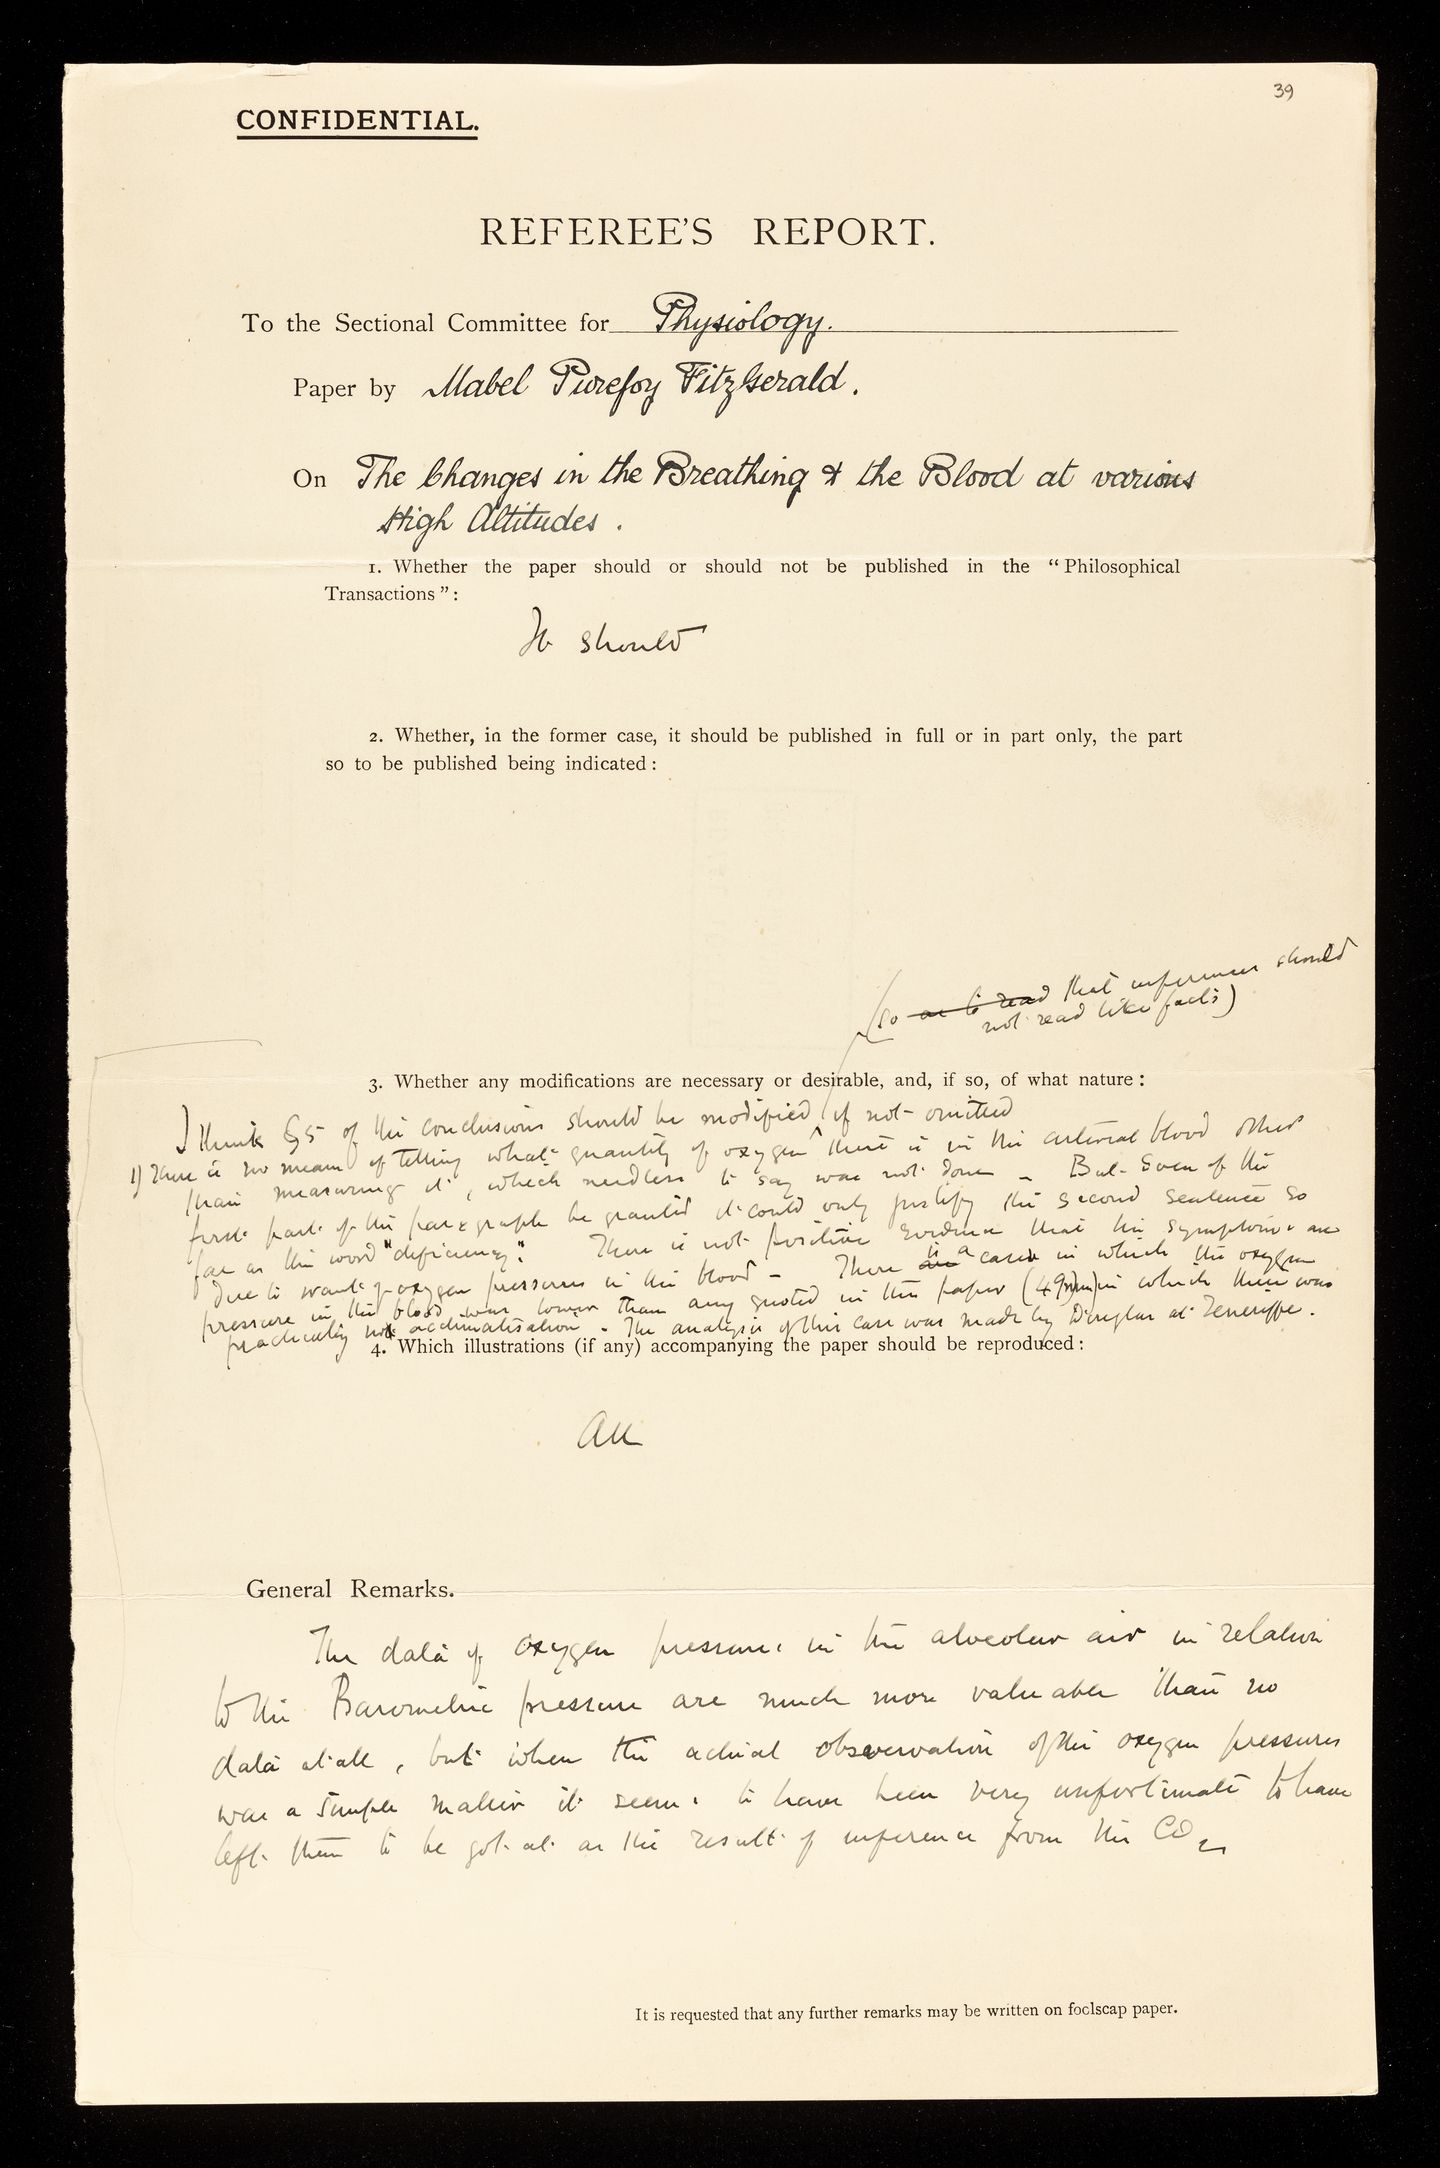 39
CONFIDENTIAL.
REFEREE'S REPORT.
To the Sectional Committee for Physiology.
Paper by Mabel Purefoy FitzGerald.
On The Changes in the Breathing & the Blood at various
High Altitudes.
1. Whether the paper should or should not be published in the "Philosophical
Transactions":
It should
2. Whether, in the former case, it should be published in full or in part only, the part
so to be published being indicated:
(so as to read that inferences should
not read like facts)
3. Whether any modifications are necessary or desirable, and, if so, of what nature:
I think §5 of the conclusions should be modified if not omitted
1) There is no means of telling what quantity of oxygen there is in the arterial blood other
than measuring it, which needless to say was not done – But even if the
first part of the paragraph be granted it could only justify the second sentence so
far as the word "deficiency". There is not positive evidence that the symptoms are
due to want of oxygen pressure in the blood – There are is a case in which the oxygen
pressure in the blood was lower than any quoted in the paper (49mm) in which there was
practically no acclimatisation. The analysis of this case was made by Douglas at Teneriffe.
4. Which illustrations (if any) accompanying the paper should be reproduced:
All
General Remarks.
The data of oxygen pressures in the alveolar air in relation
to the Barometric pressure are much more valuable than no
data at all, but when the actual observation of the oxygen pressures
was a simple matter it seems to have been very unfortunate to have
left them to be got at as the result of inference from the CO2
It is requested that any further remarks may be written on foolscap paper.